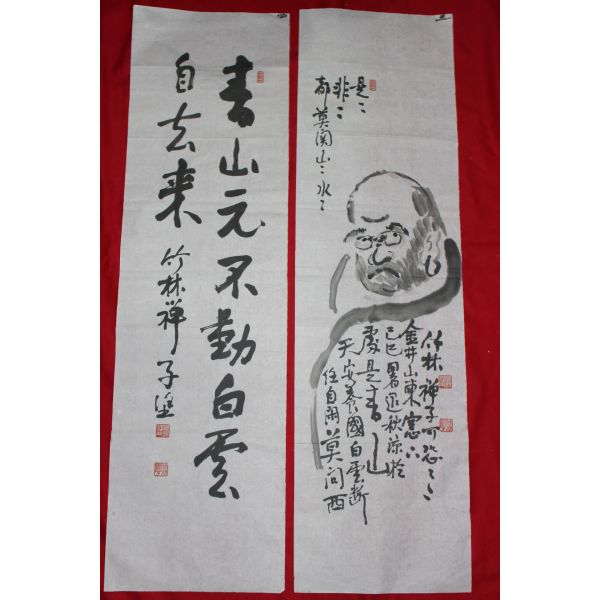 是〻
非〻
都莫関山〻水〻
任自閑莫問西
天安養國白雲断
處是青山
己巳暑退秋凉於
金井山東窓下
竹林禅子
青山元不動白雲
自去来
竹林禅子